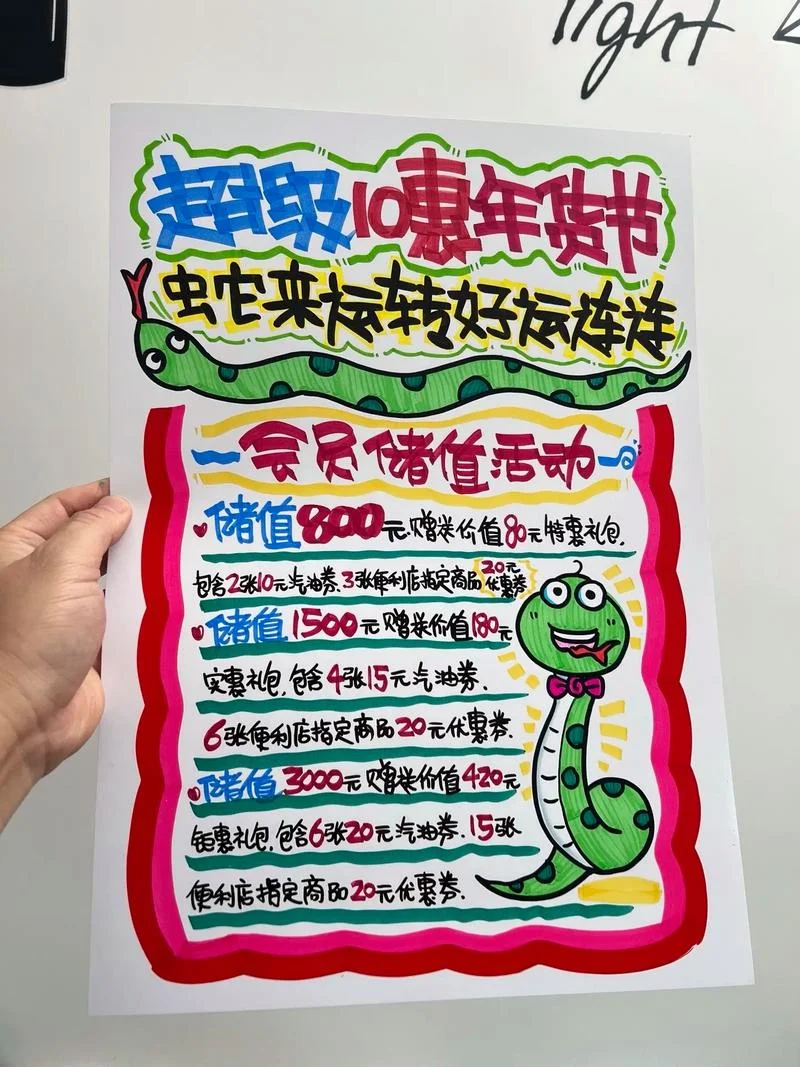 light
超级10惠年货节
蛇来运转好运连连
会员储值活动
储值800元.赠送价值80元特惠礼包.
包含2张10元汽油券.3张便利店指定商品20元优惠券
储值1500元赠送价值180元
实惠礼包.包含4张15元汽油券.
6张便利店指定商品20元优惠券.
储值3000元赠送价值420元
钜惠礼包.包含6张20元汽油券.15张
便利店指定商品20元优惠券.